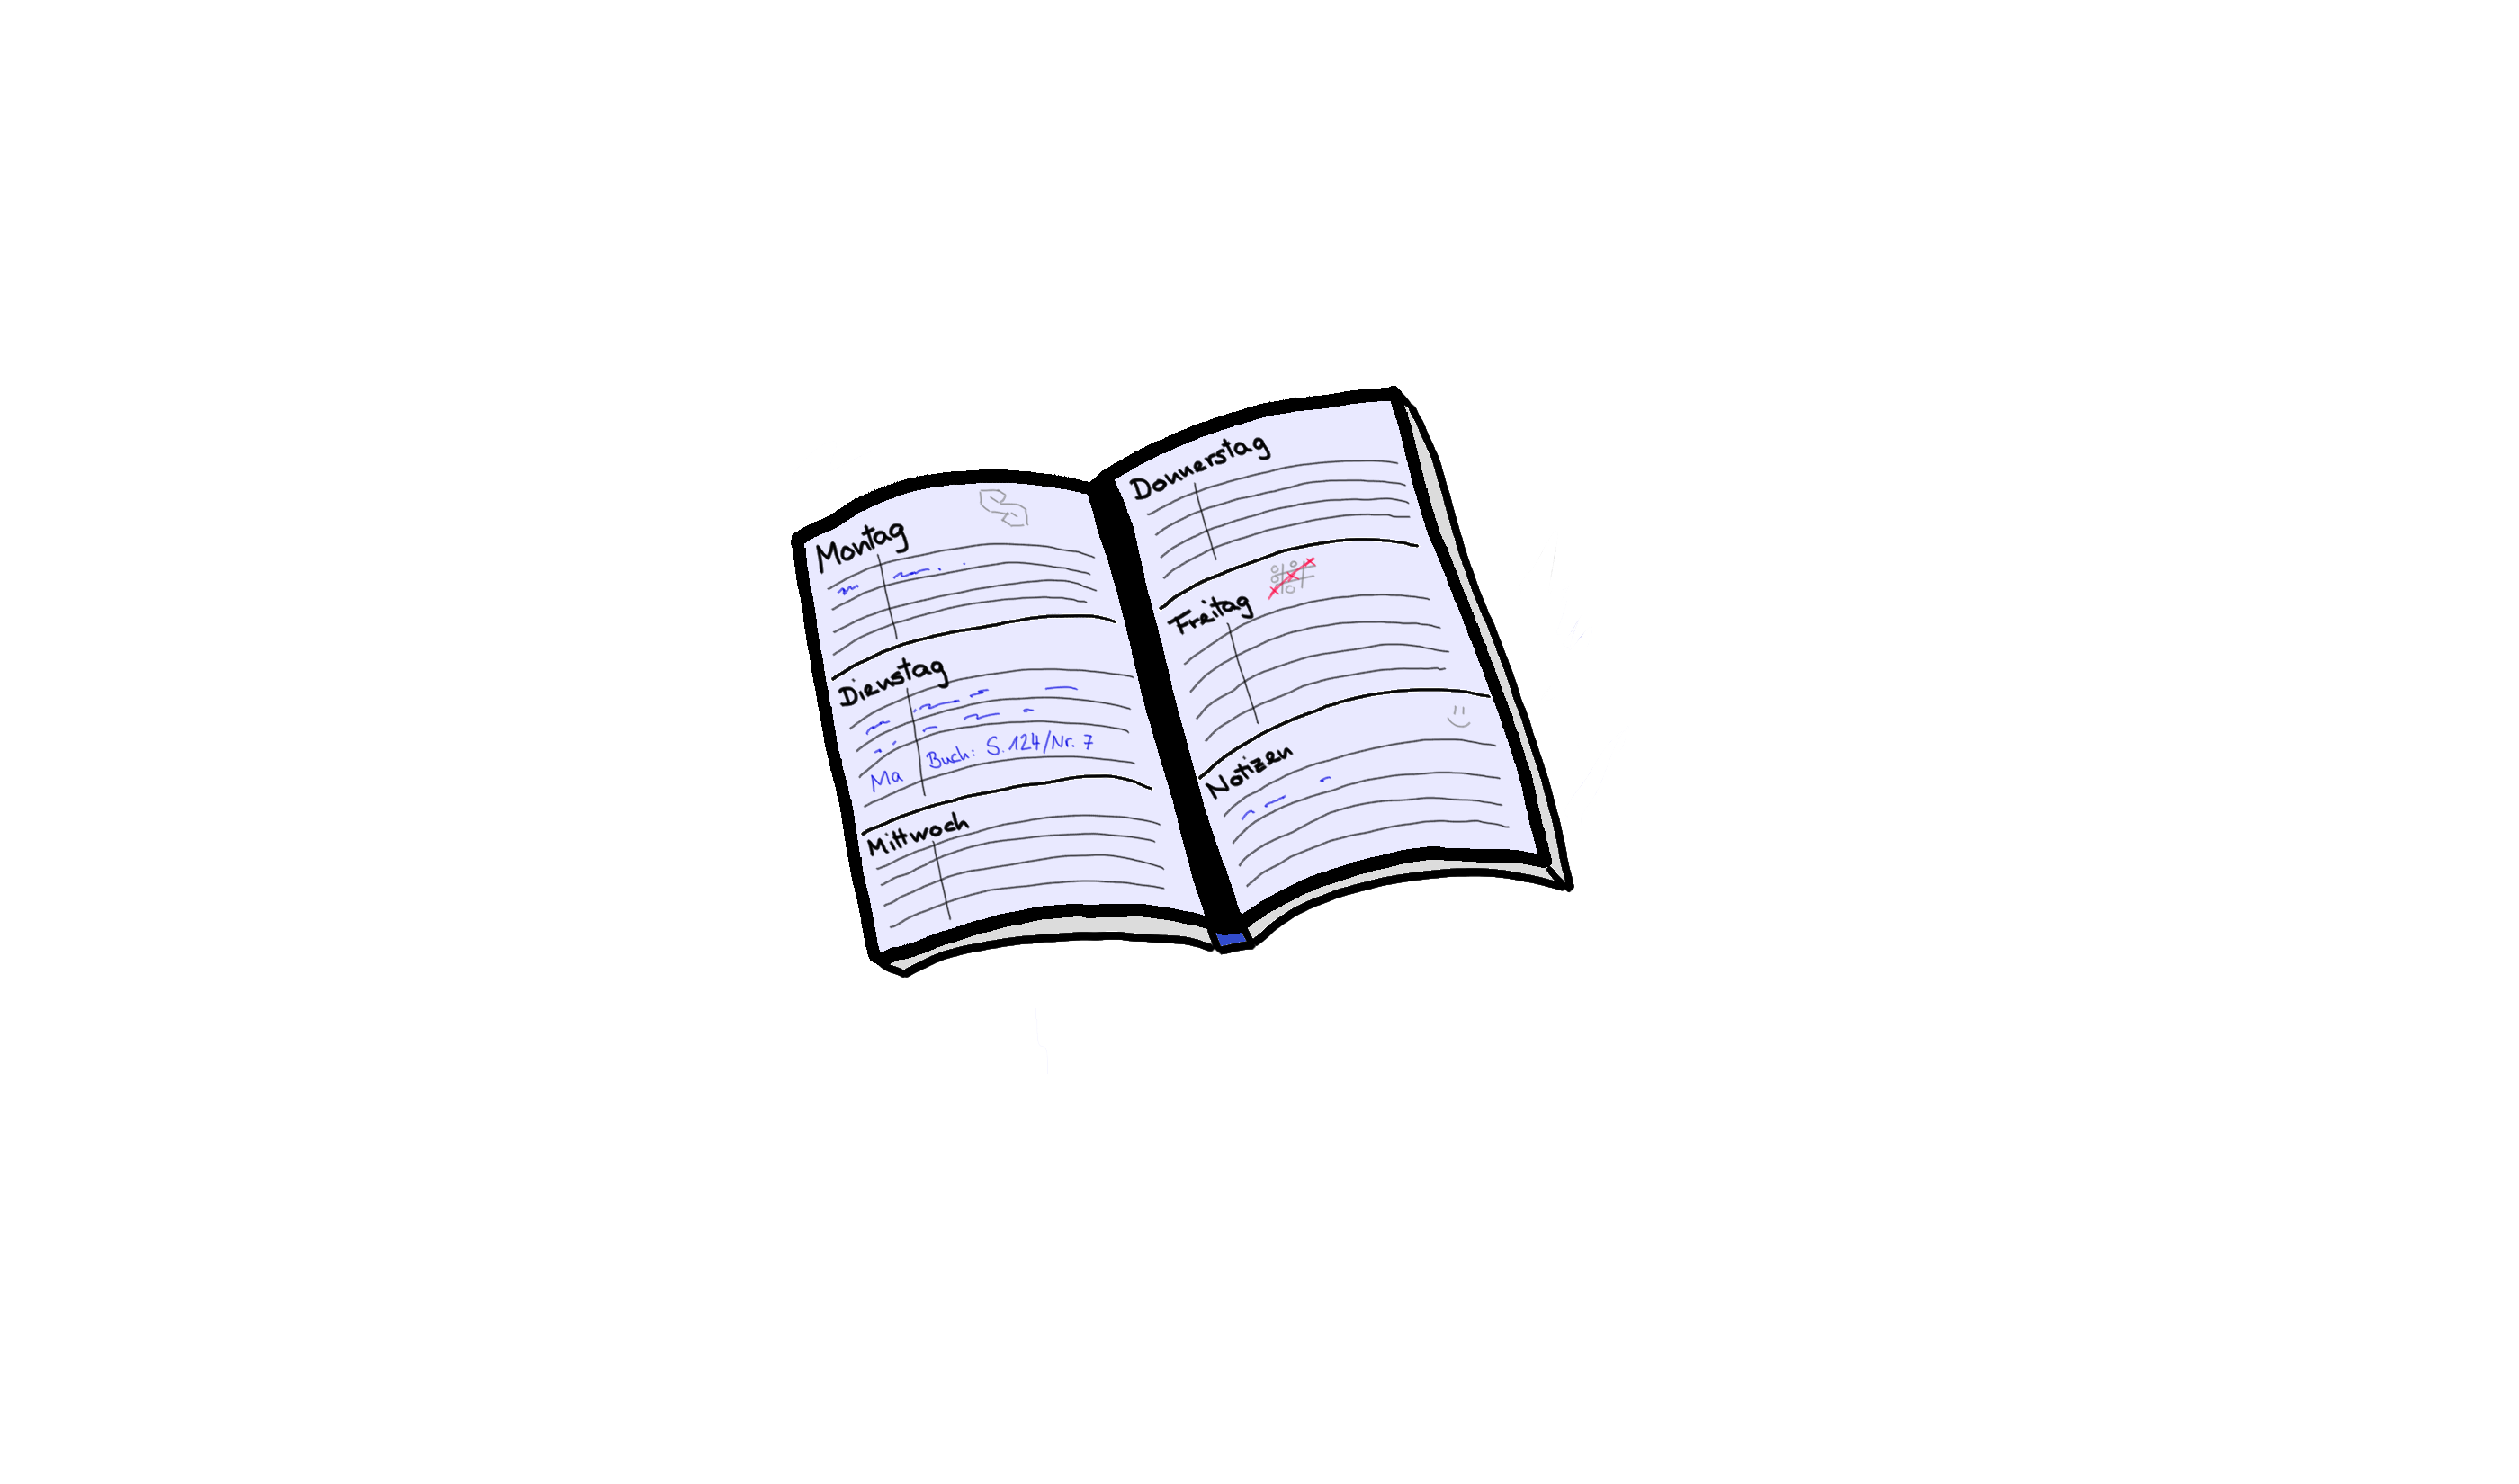 Montag
Dienstag
Ma Buch: S. 124/Nr. 7
Mittwoch
Donnerstag
Freitag
Notizen